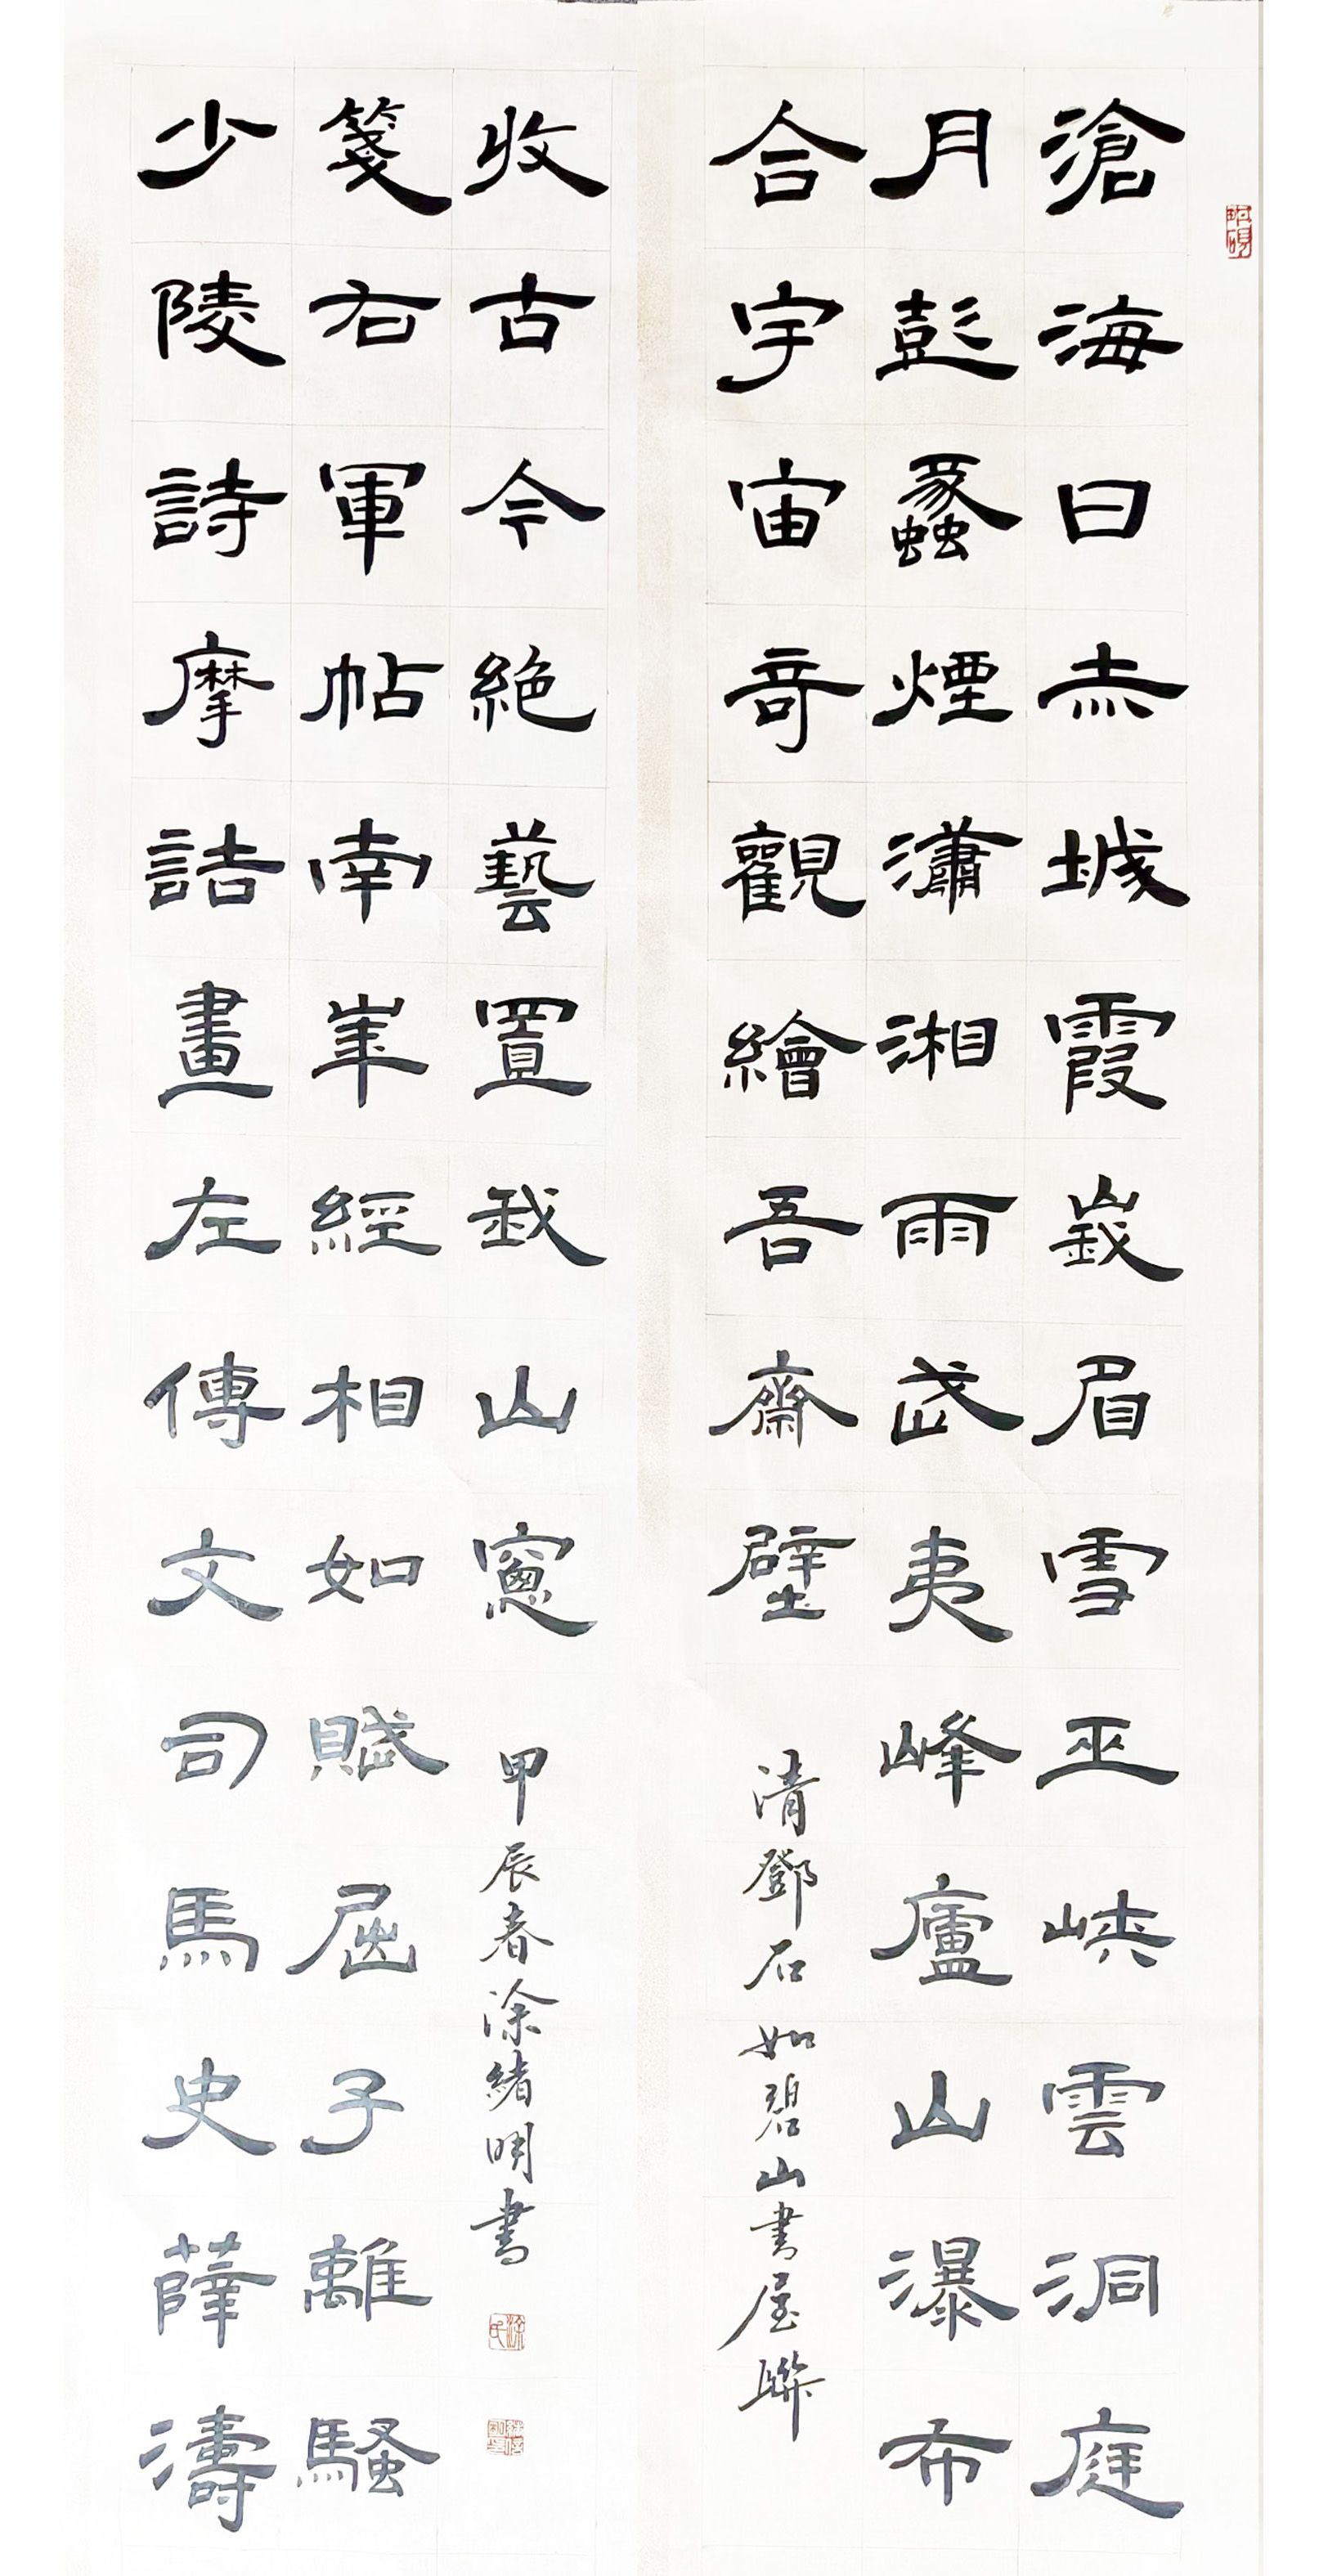 滄海日赤城霞峩眉雪巫峽雲洞庭
月彭蠡煙瀟湘雨武夷峰廬山瀑布
合宇宙奇觀繪吾齋壁
清鄧石如碧山書屋聯
少陵詩摩詰畫左傳文司馬史薛濤
箋右軍帖南崋經相如賦屈子離騷
收古今絕藝置我山窻
甲辰春涂緒明書